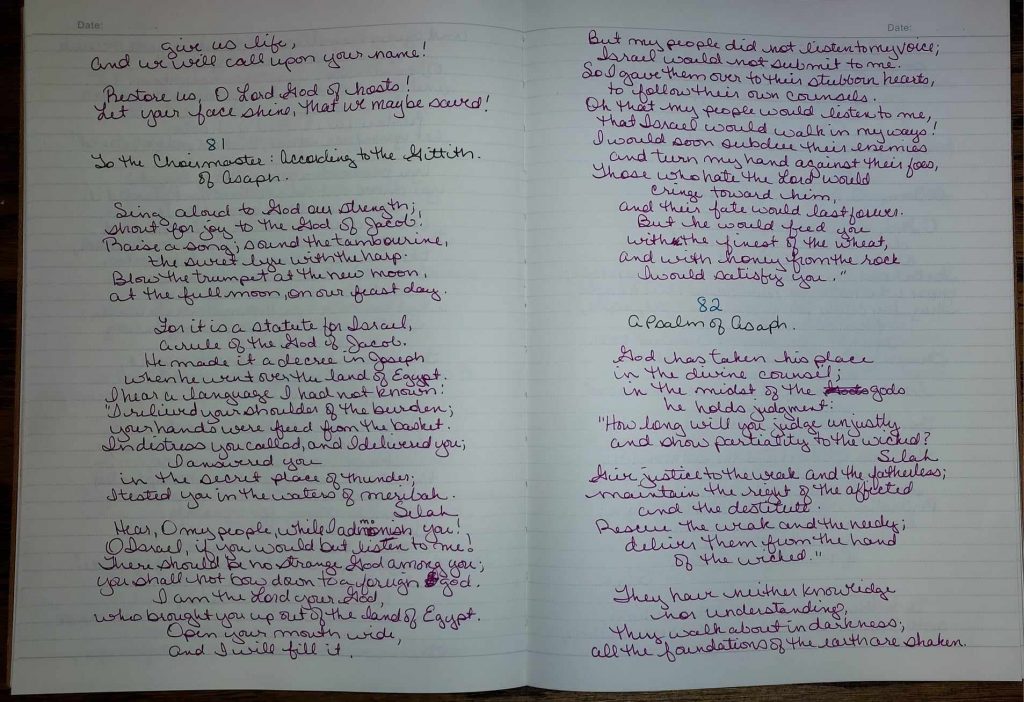 Date:
give us life,
and we will call upon your name!
Restore us, O Lord God of hosts!
Let your face shine, that we may be saved!
81
To the Choirmaster: According to the Gittith.
of Asaph.
Sing aloud to God our strength;
shout for joy to the God of Jacob!
Raise a song; sound the tambourine,
the sweet lyre with the harp.
Blow the trumpet at the new moon,
at the full moon, on our feast day.
For it is a statute for Israel,
a rule of the God of Jacob.
He made it a decree in Joseph
when he went over the land of Egypt.
I hear a language I had not known:
"I relieved your shoulder of the burden;
your hands were freed from the basket.
In distress you called, and I delivered you;
I answered you
in the secret place of thunder;
I tested you in the waters of meribah.
Selah
Hear, O my people, while I admonish you!
O Israel, if you would but listen to me!
There should be no strange God among you;
you shall not bow down to a foreign god.
I am the Lord your God,
who brought you up out of the land of Egypt.
Open your mouth wide,
and I will fill it.
Date:
But my people did not listen to my voice;
Israel would not submit to me.
So I gave them over to their stubborn hearts,
to follow their own counsels.
Oh that my people would listen to me,
that Israel would walk in my ways!
I would soon subdue their enemies
and turn my hand against their foes,
Those who hate the Lord would
cringe toward him,
and their fate would last forever.
But he would feed you
with the finest of the wheat,
and with honey from the rock
I would satisfy you."
82
A Psalm of Asaph.
God has taken his place
in the divine council;
in the midst of the gods
he holds judgment:
"How long will you judge unjustly
and show partiality to the wicked?
Selah
Give justice to the weak and the fatherless;
maintain the right of the afflicted
and the destitute.
Rescue the weak and the needy;
deliver them from the hand
of the wicked."
They have neither knowledge
nor understanding,
they walk about in darkness;
all the foundations of the earth are shaken.